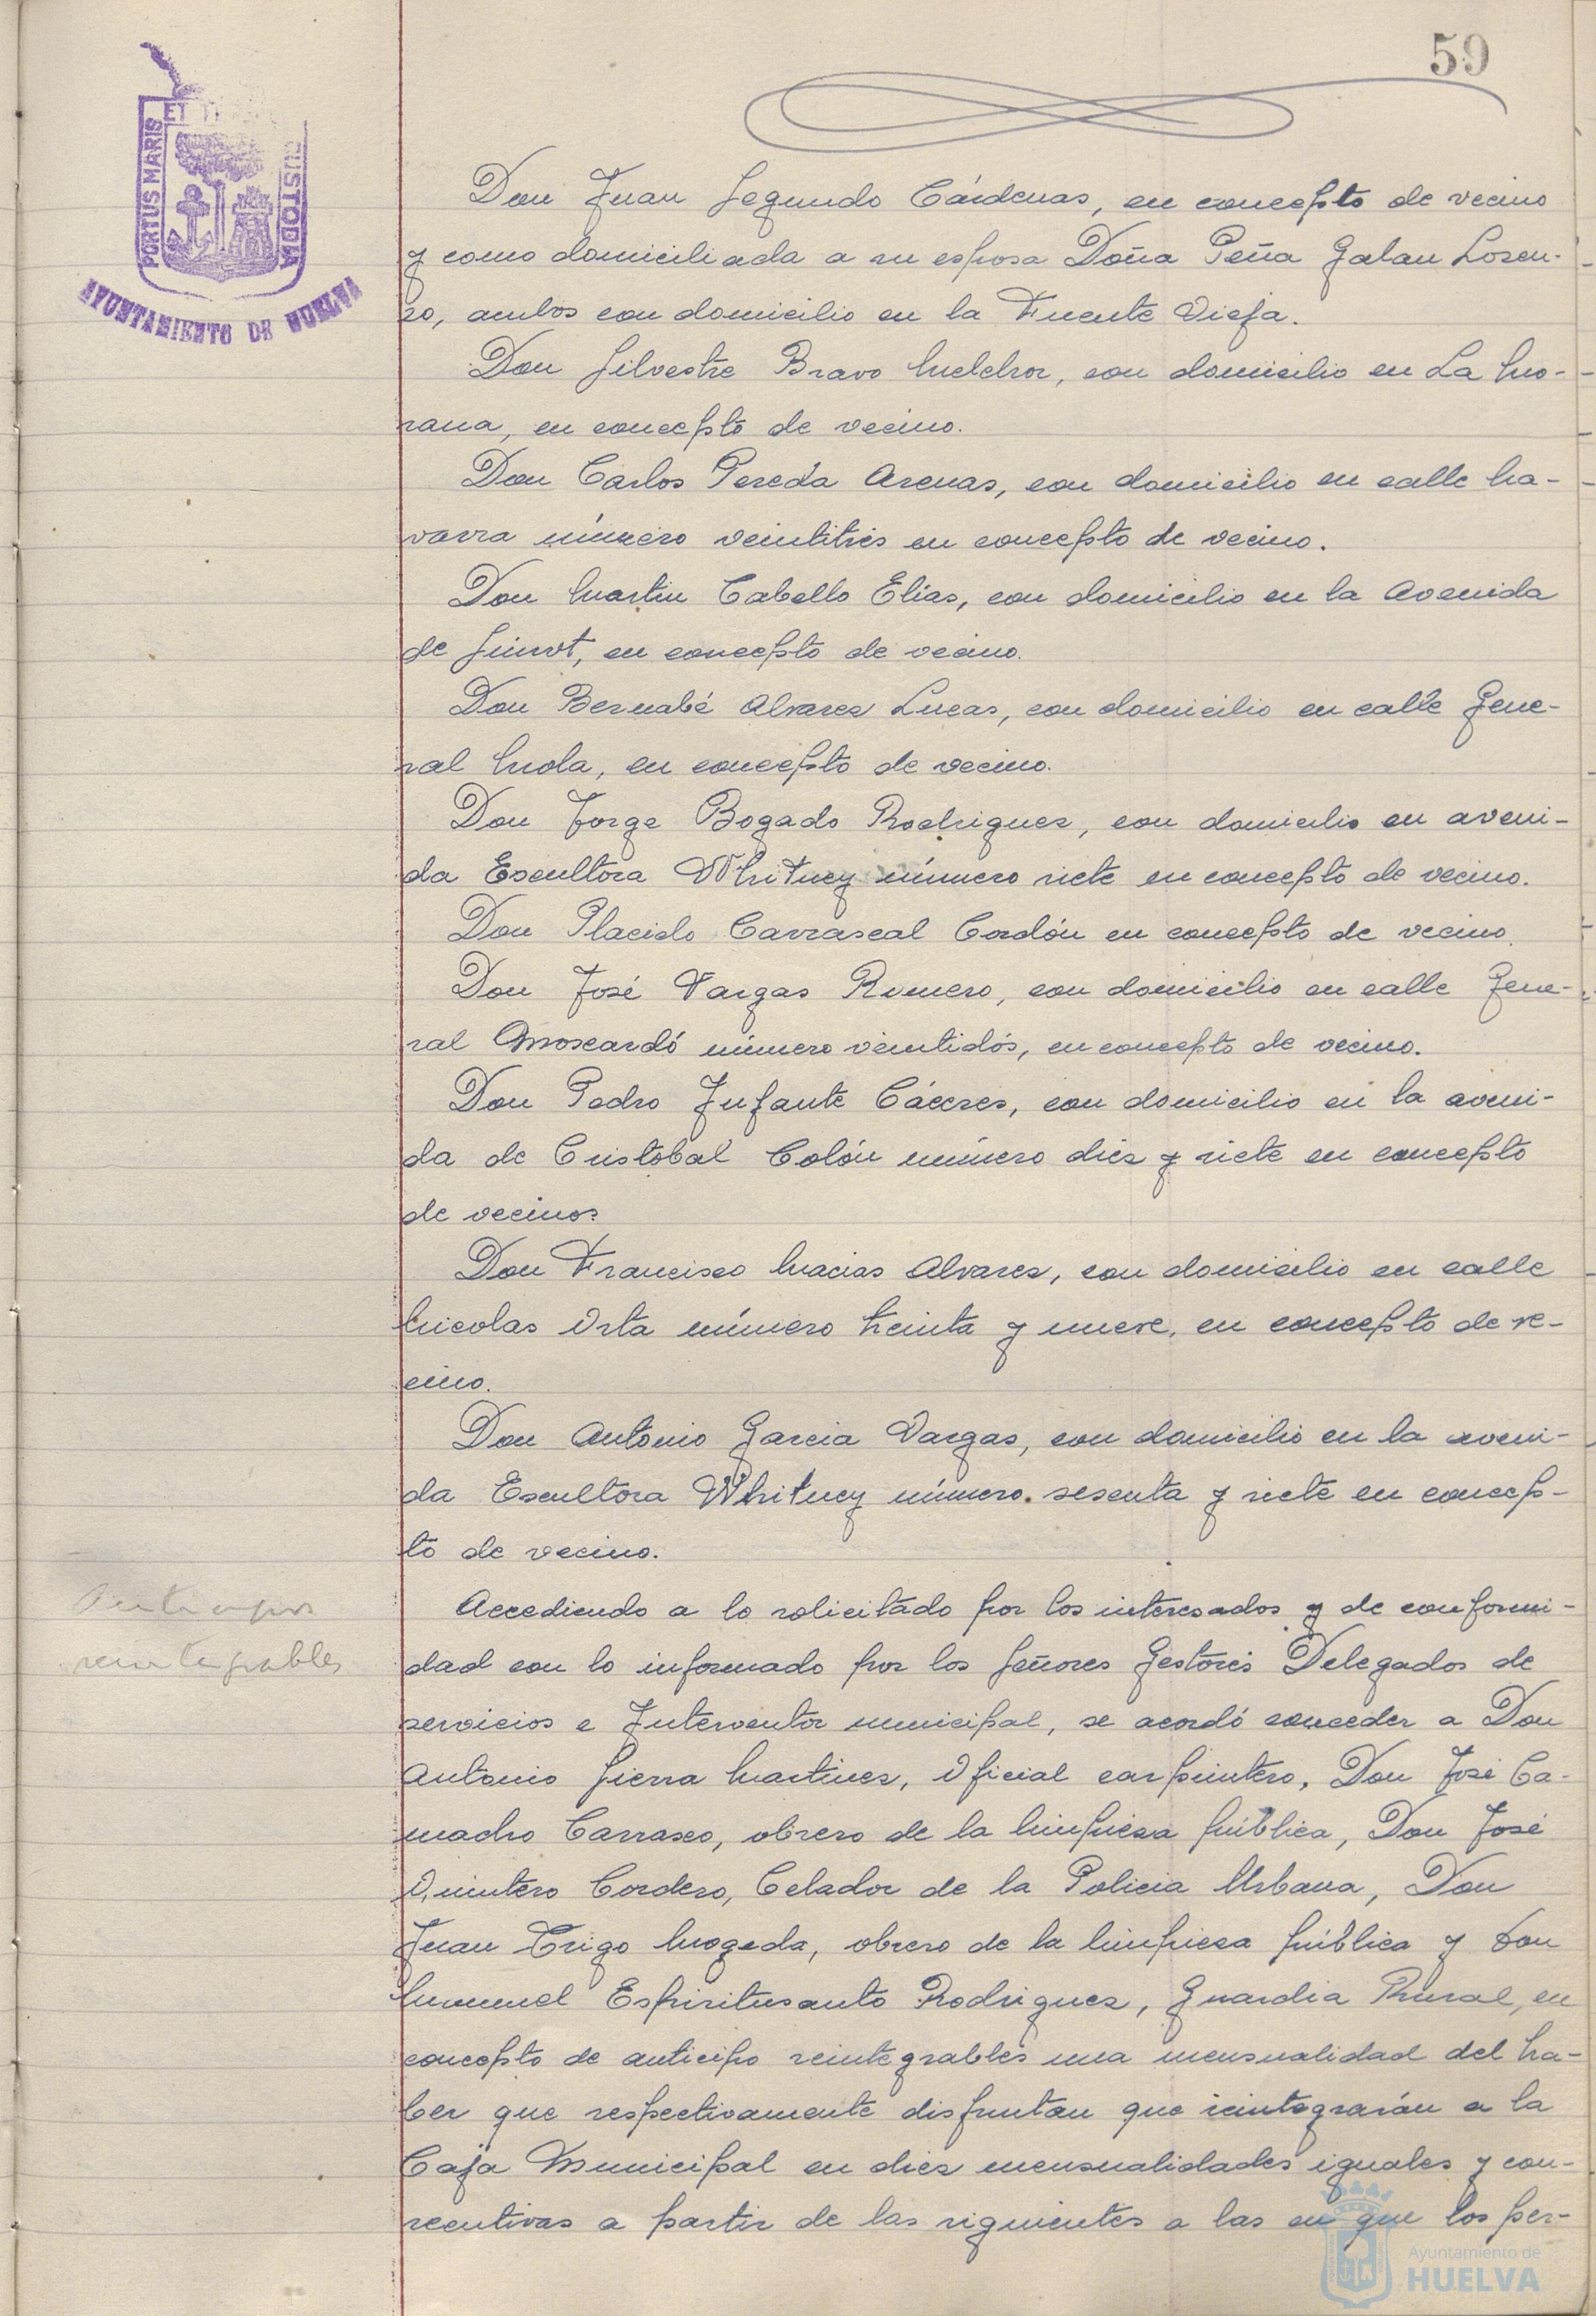 59
PORTUS MARIS ET CUSTODIA
AYUNTAMIENTO DE HUELVA
Don Juan Segundo Cárdenas, en concepto de vecino
y como domiciliada a su esposa Doña Peña Galan Loren-
zo, ambos con domicilio en la Fuente Vieja.
Don Silvestre Bravo Melchor, con domicilio en La Mo-
rana, en concepto de vecino.
Don Carlos Pereda Arenas, con domicilio en calle Na-
varra número veintitrés en concepto de vecino.
Don Martin Cabello Elías, con domicilio en la Avenida
de , en concepto de vecino.
Don Bernabé Alvarez Lucas, con domicilio en calle Gene-
ral Mola, en concepto de vecino.
Don Jorge Bogado Rodriguez, con domicilio en aveni-
da Escultora Whitney número siete en concepto de vecino.
Don Placido Carrascal Cordón en concepto de vecino.
Don José Vargas Romero, con domicilio en calle Gene-
ral Moscardó número veintidós, en concepto de vecino.
Don Pedro Infante Cáceres, con domicilio en la aveni-
da de Cristobal Colón número diez y siete en concepto
de vecinos
Don Francisco Macias Alvarez, con domicilio en calle
Nicolas Orta número treinta y nueve, en concepto de ve-
cino.
Don Antonio Garcia Vargas, con domicilio en la aveni-
da Escultora Whitney número sesenta y siete en concep-
to de vecino.
Anticipos
reintegrables
Accediendo a lo solicitado por los interesados y de conformi-
dad con lo informado por los Señores Gestores Delegados de
servicios e Interventor municipal, se acordó conceder a Don
Antonio Sierra Martinez, Oficial carpintero, Don José Ca-
macho Carrasco, obrero de la limpieza pública, Don José
Quintero Cordero, Celador de la Policia Urbana, Don
Juan Trigo Mogeda, obrero de la limpieza pública y Don
Manuel Espiritusanto Rodriguez, Guardia Rural, en
concepto de anticipo reintegrables una mensualidad del ha-
ber que respectivamente disfrutan que reintegrarán a la
Caja Municipal en diez mensualidades iguales y con-
secutivas a partir de las siguientes a las en que los per-
Ayuntamiento de
HUELVA